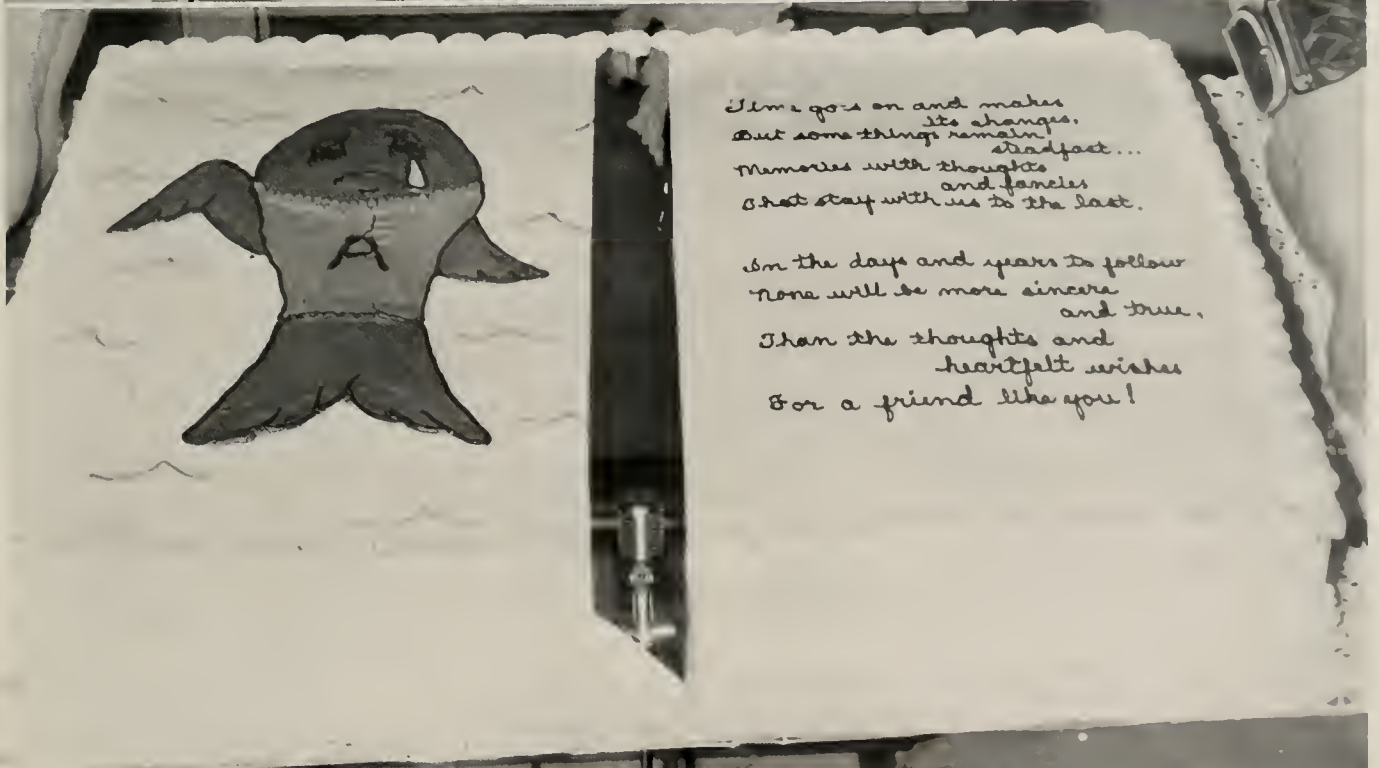 Time goes on and makes
its changes.
But some things remain
steadfast...
Memories with thoughts
and fancies
That stay with us to the last.
In the days and years to follow
None will be more sincere
and true,
Than the thoughts and
heartfelt wishes
For a friend like you!
A